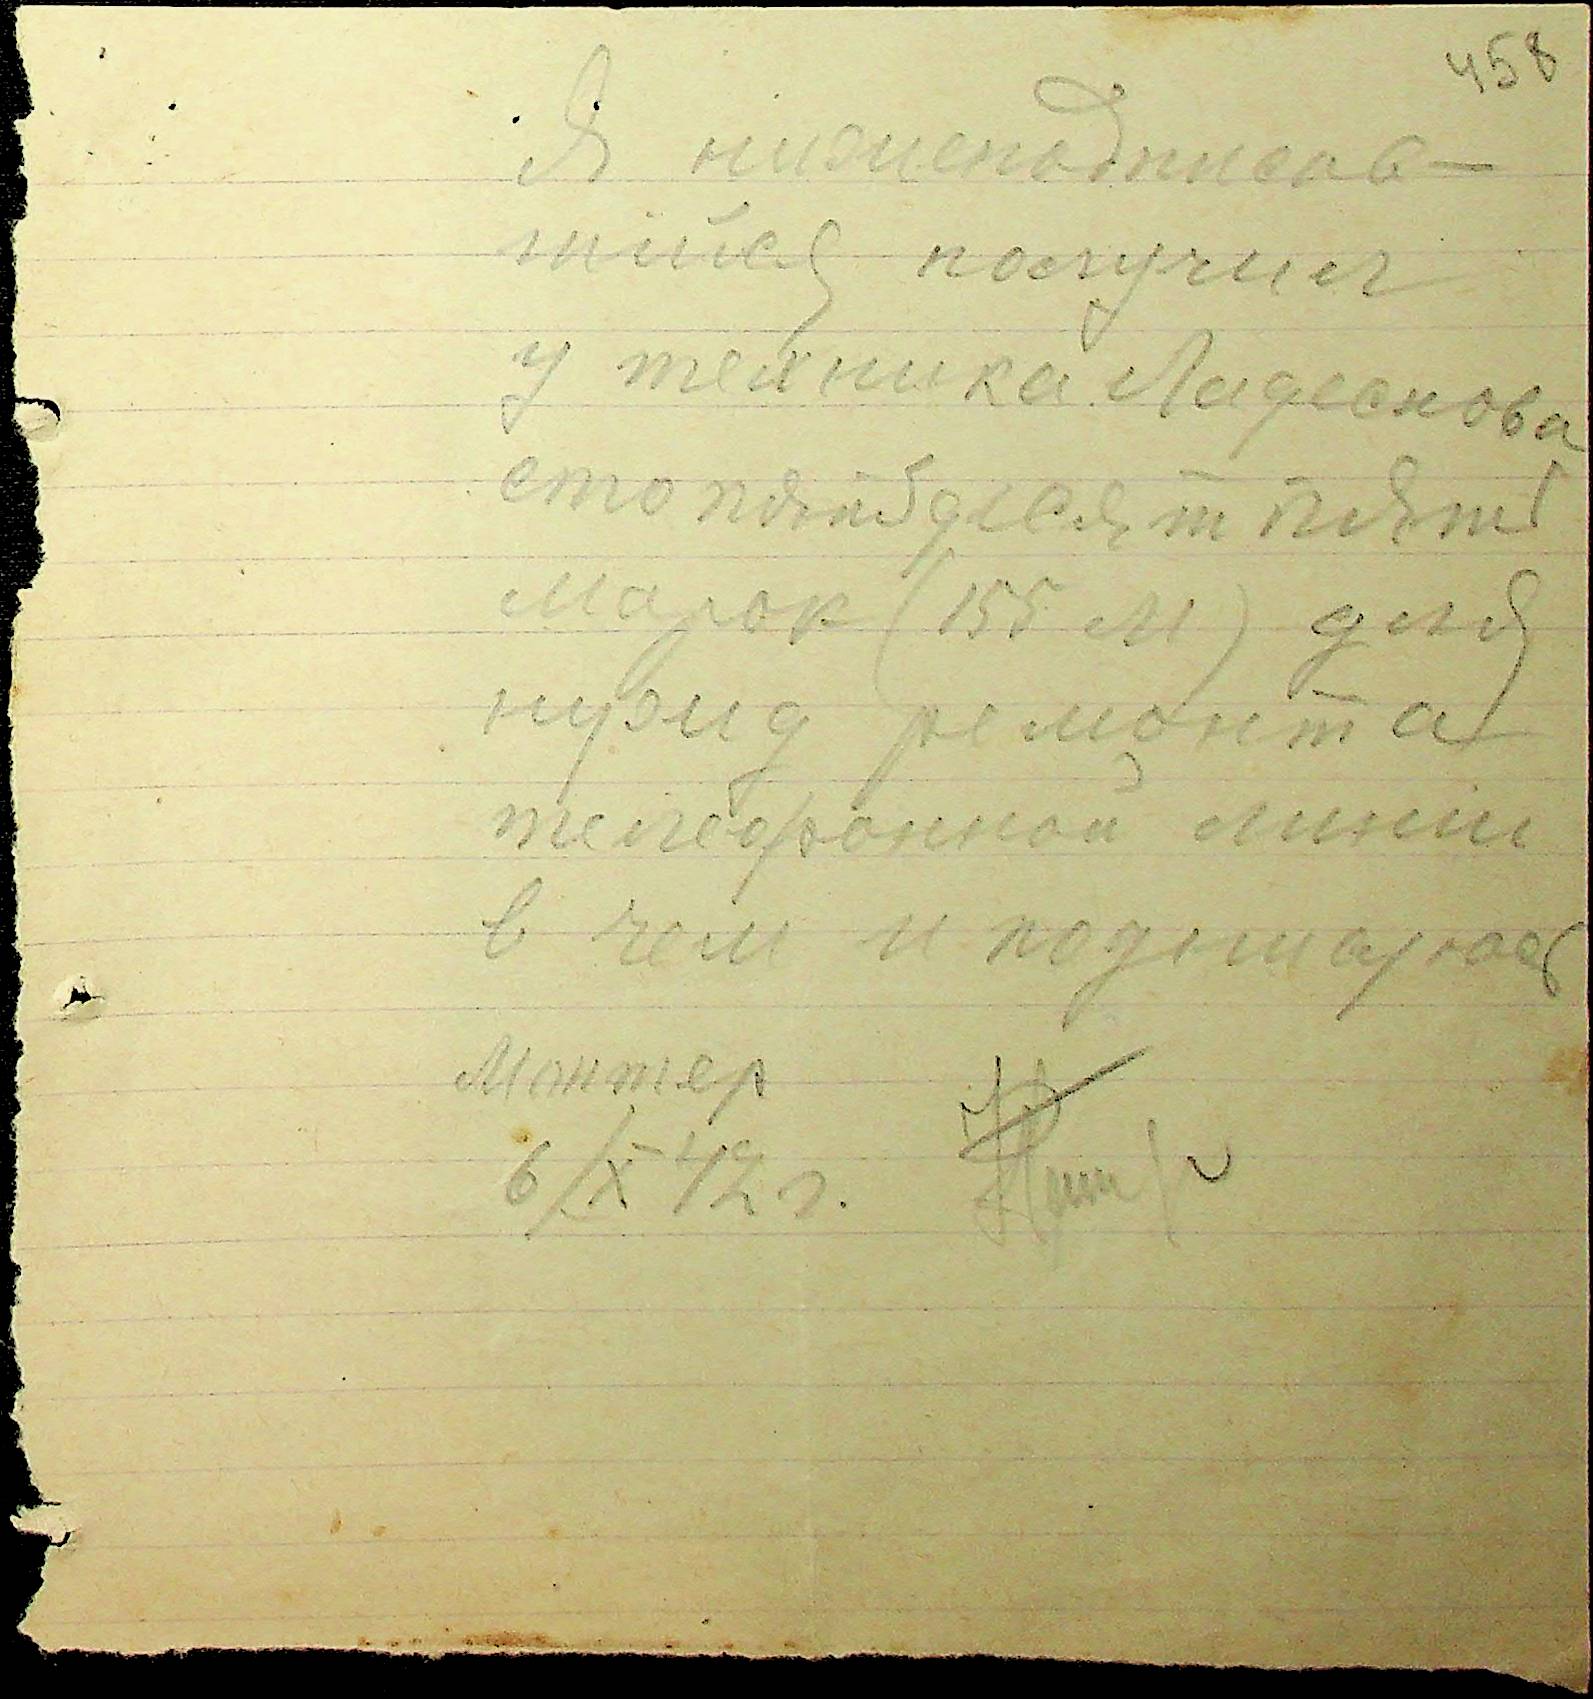 458
Я нижеподписав-
шийся получил
у техника Ладеснова
сто пятьдесят пять
марок (155 м) для
нужд ремонта
телефонной линии
в чем и подпишуюсь
Монтер
6/IX 42 г.